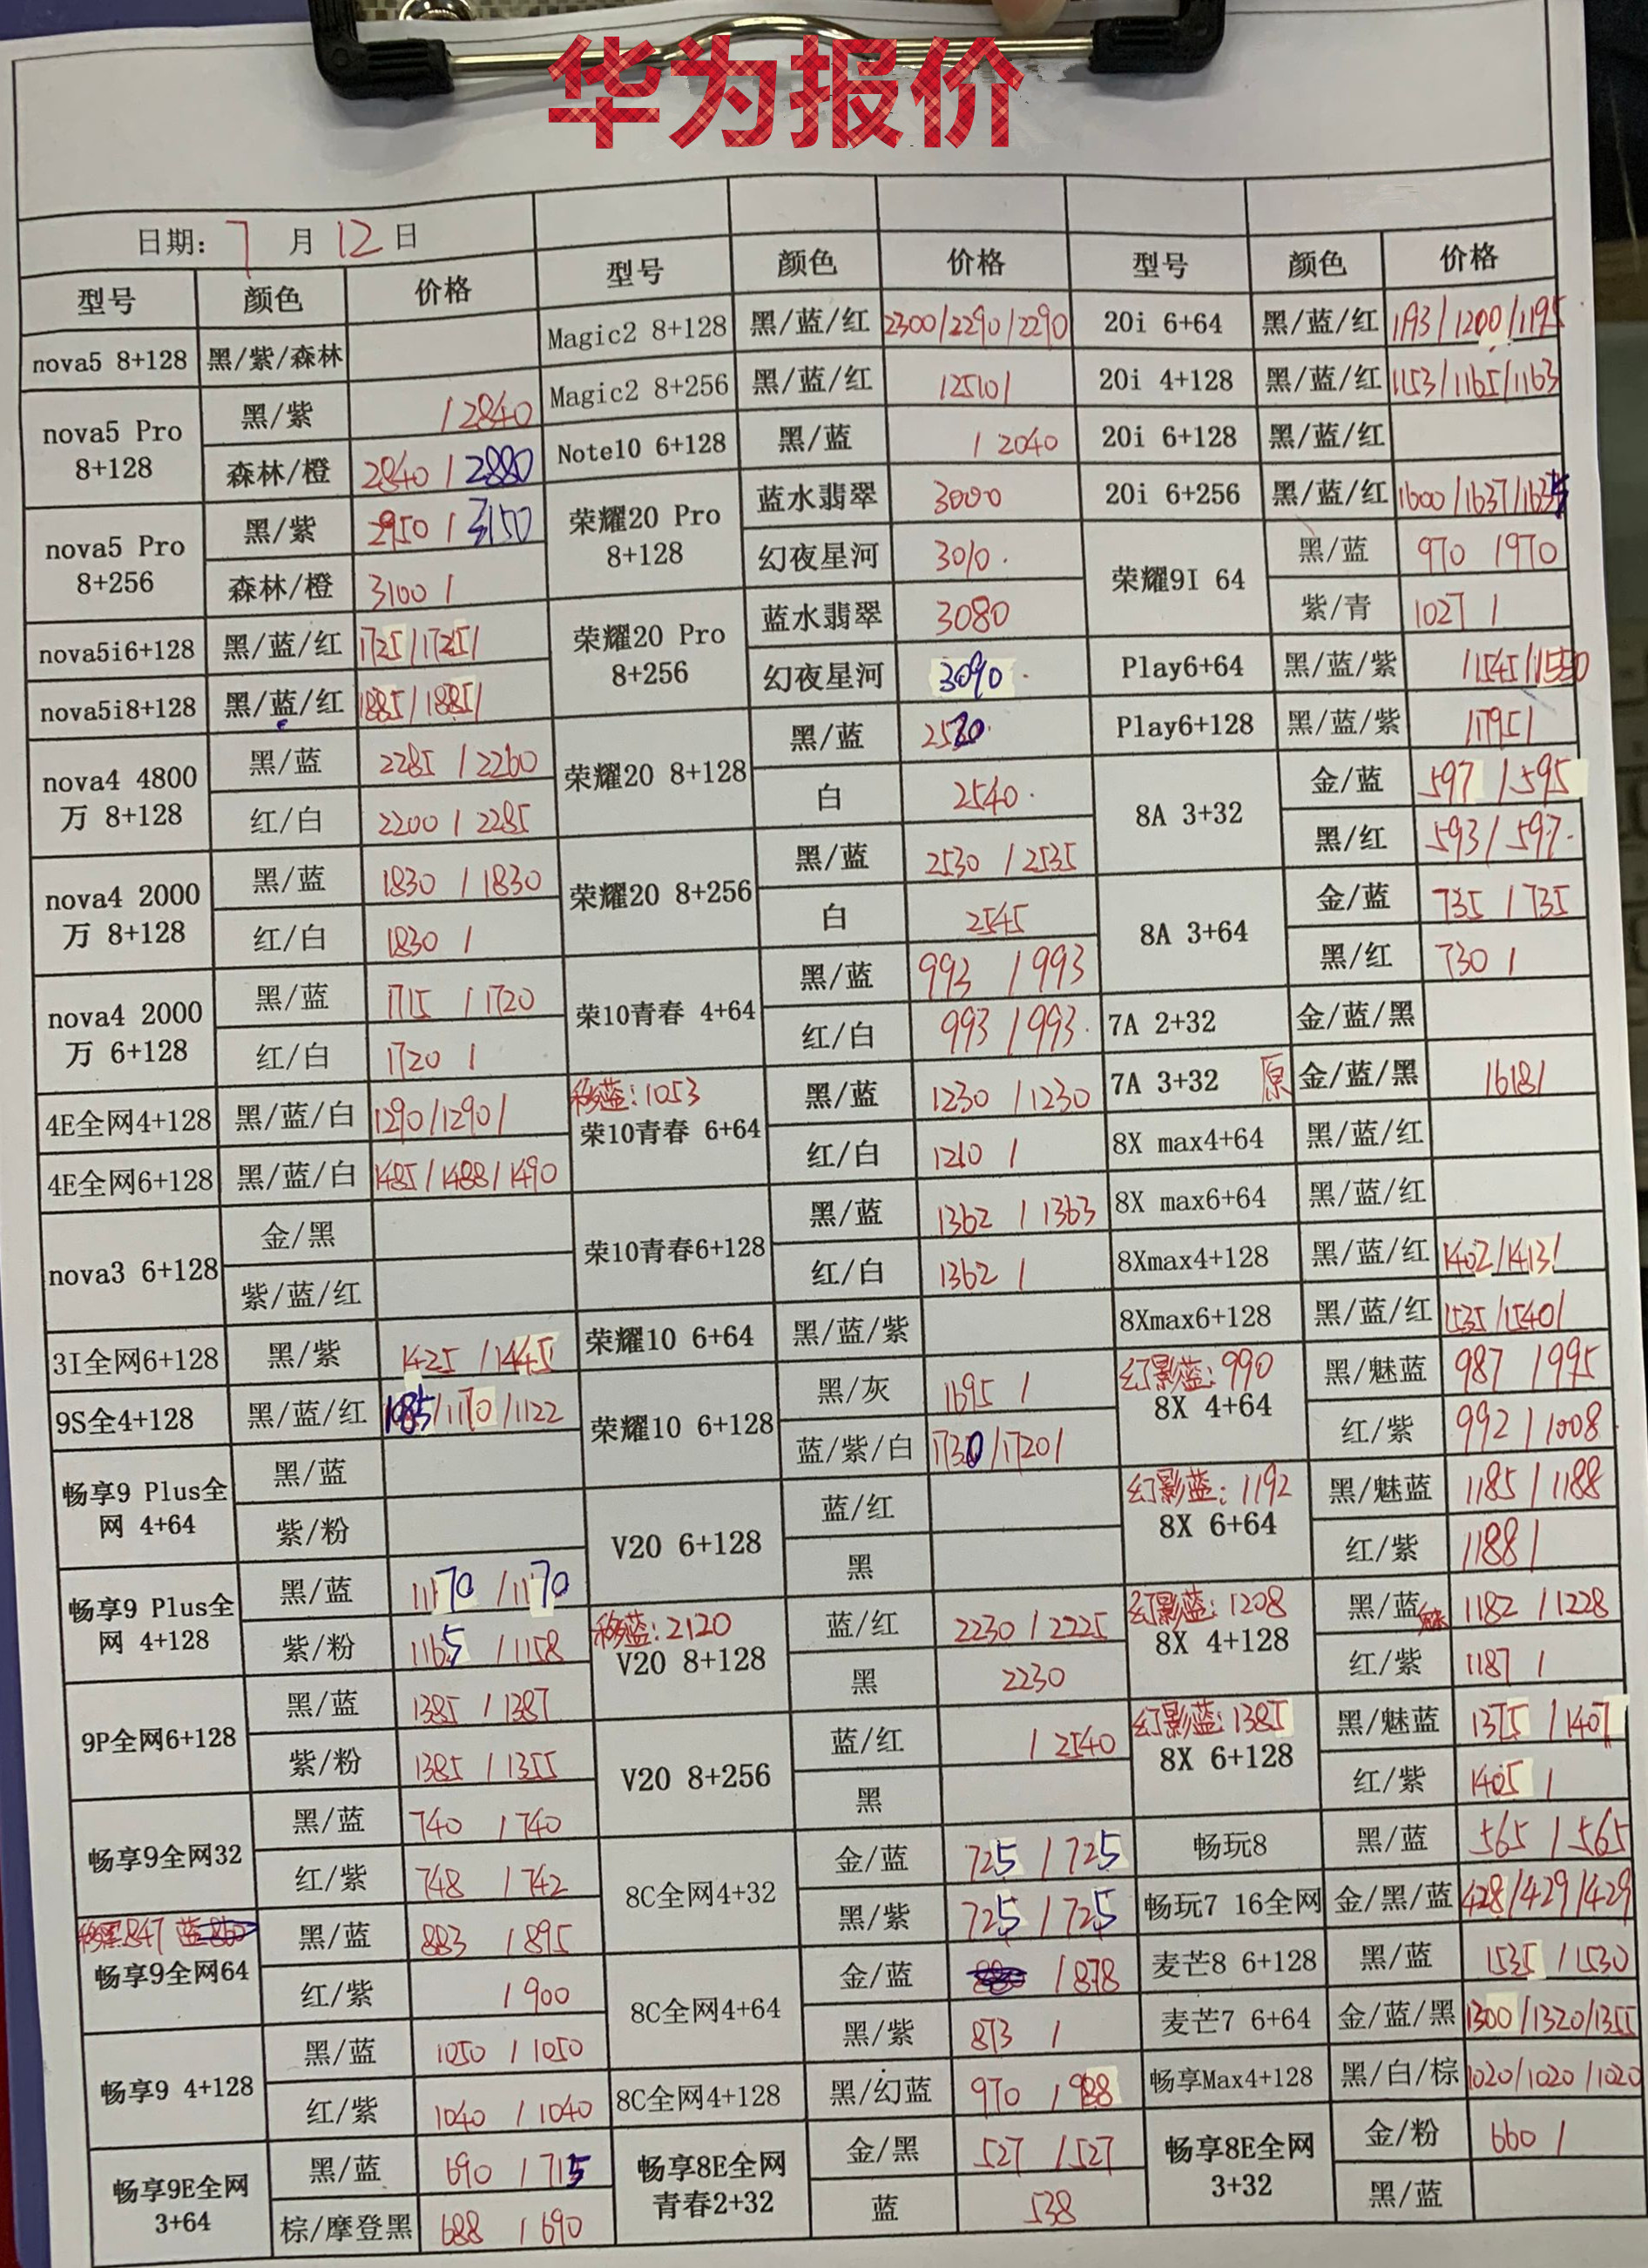 华为报价
日期: 7 月 12 日
型号 颜色 价格 型号 颜色 价格 型号 颜色 价格
nova5 8+128 黑/紫/森林
nova5 Pro 8+128 黑/紫 / 2840
森林/橙 2840 / 2880
nova5 Pro 8+256 黑/紫 2950 / 3150
森林/橙 3100 /
nova5i6+128 黑/蓝/红 1725/1725/
nova5i8+128 黑/蓝/红 1885/1885/
nova4 4800万 8+128 黑/蓝 2285 / 2260
红/白 2200 / 2285
nova4 2000万 8+128 黑/蓝 1830 / 1830
红/白 1830 /
nova4 2000万 6+128 黑/蓝 1715 / 1720
红/白 1720 /
4E全网4+128 黑/蓝/白 1290/1290/
4E全网6+128 黑/蓝/白 1485/1488/1490
nova3 6+128 金/黑
紫/蓝/红
3I全网6+128 黑/紫 1425 / 1445
9S全4+128 黑/蓝/红 1085/1170/1122
畅享9 Plus全网 4+64 黑/蓝
紫/粉
畅享9 Plus全网 4+128 黑/蓝 1170 / 1170
紫/粉 1165 / 1158
9P全网6+128 黑/蓝 1385 / 1387
紫/粉 1385 / 1355
畅享9全网32 黑/蓝 740 / 740
红/紫 748 / 742
移黑847 蓝
畅享9全网64 黑/蓝 883 / 895
红/紫 / 900
畅享9 4+128 黑/蓝 1050 / 1050
红/紫 1040 / 1040
畅享9E全网 3+64 黑/蓝 690 / 715
棕/摩登黑 688 / 690
Magic2 8+128 黑/蓝/红 2300/2290/2290
Magic2 8+256 黑/蓝/红 /2510/
Note10 6+128 黑/蓝 / 2040
荣耀20 Pro 8+128 蓝水翡翠 3000
幻夜星河 3010
荣耀20 Pro 8+256 蓝水翡翠 3080
幻夜星河 3090
荣耀20 8+128 黑/蓝 2530
白 2540
荣耀20 8+256 黑/蓝 2530 / 2535
白 2545
荣10青春 4+64 黑/蓝 993 / 993
红/白 993 / 993
移蓝:1053
荣10青春 6+64 黑/蓝 1230 / 1230
红/白 1210 /
荣10青春6+128 黑/蓝 1362 / 1363
红/白 1362 /
荣耀10 6+64 黑/蓝/紫
荣耀10 6+128 黑/灰 1695 /
蓝/紫/白 1730/1720/
V20 6+128 蓝/红
黑
移蓝:2120
V20 8+128 蓝/红 2230 / 2225
黑 2230
V20 8+256 蓝/红 / 2540
黑
8C全网4+32 金/蓝 725 / 725
黑/紫 725 / 725
8C全网4+64 金/蓝 / 878
黑/紫 873 /
8C全网4+128 黑/幻蓝 970 / 988
畅享8E全网青春2+32 金/黑 527 / 527
蓝 538
20i 6+64 黑/蓝/红 1193/1200/1195
20i 4+128 黑/蓝/红 1153/1165/1163
20i 6+128 黑/蓝/红
20i 6+256 黑/蓝/红 1600/1637/1635
荣耀9I 64 黑/蓝 970 / 970
紫/青 1027 /
Play6+64 黑/蓝/紫 /1545/1550
Play6+128 黑/蓝/紫 /1795/
8A 3+32 金/蓝 597 / 595
黑/红 593 / 597
8A 3+64 金/蓝 735 / 735
黑/红 730 /
7A 2+32 金/蓝/黑
7A 3+32 原 金/蓝/黑 /618/
8X max4+64 黑/蓝/红
8X max6+64 黑/蓝/红
8Xmax4+128 黑/蓝/红 1402/1413/
8Xmax6+128 黑/蓝/红 1535/1540/
幻影蓝:990
8X 4+64 黑/魅蓝 987 / 995
红/紫 992 / 1008
幻影蓝:1192
8X 6+64 黑/魅蓝 1185 / 1188
红/紫 1188 /
幻影蓝:1208
8X 4+128 黑/蓝 魅 1182 / 1228
红/紫 1187 /
幻影蓝:1385
8X 6+128 黑/魅蓝 1375 / 1407
红/紫 1405 /
畅玩8 黑/蓝 565 / 565
畅玩7 16全网 金/黑/蓝 428/429/429
麦芒8 6+128 黑/蓝 1535 / 1530
麦芒7 6+64 金/蓝/黑 1300/1320/1355
畅享Max4+128 黑/白/棕 1020/1020/1020
畅享8E全网 3+32 金/粉 660 /
黑/蓝